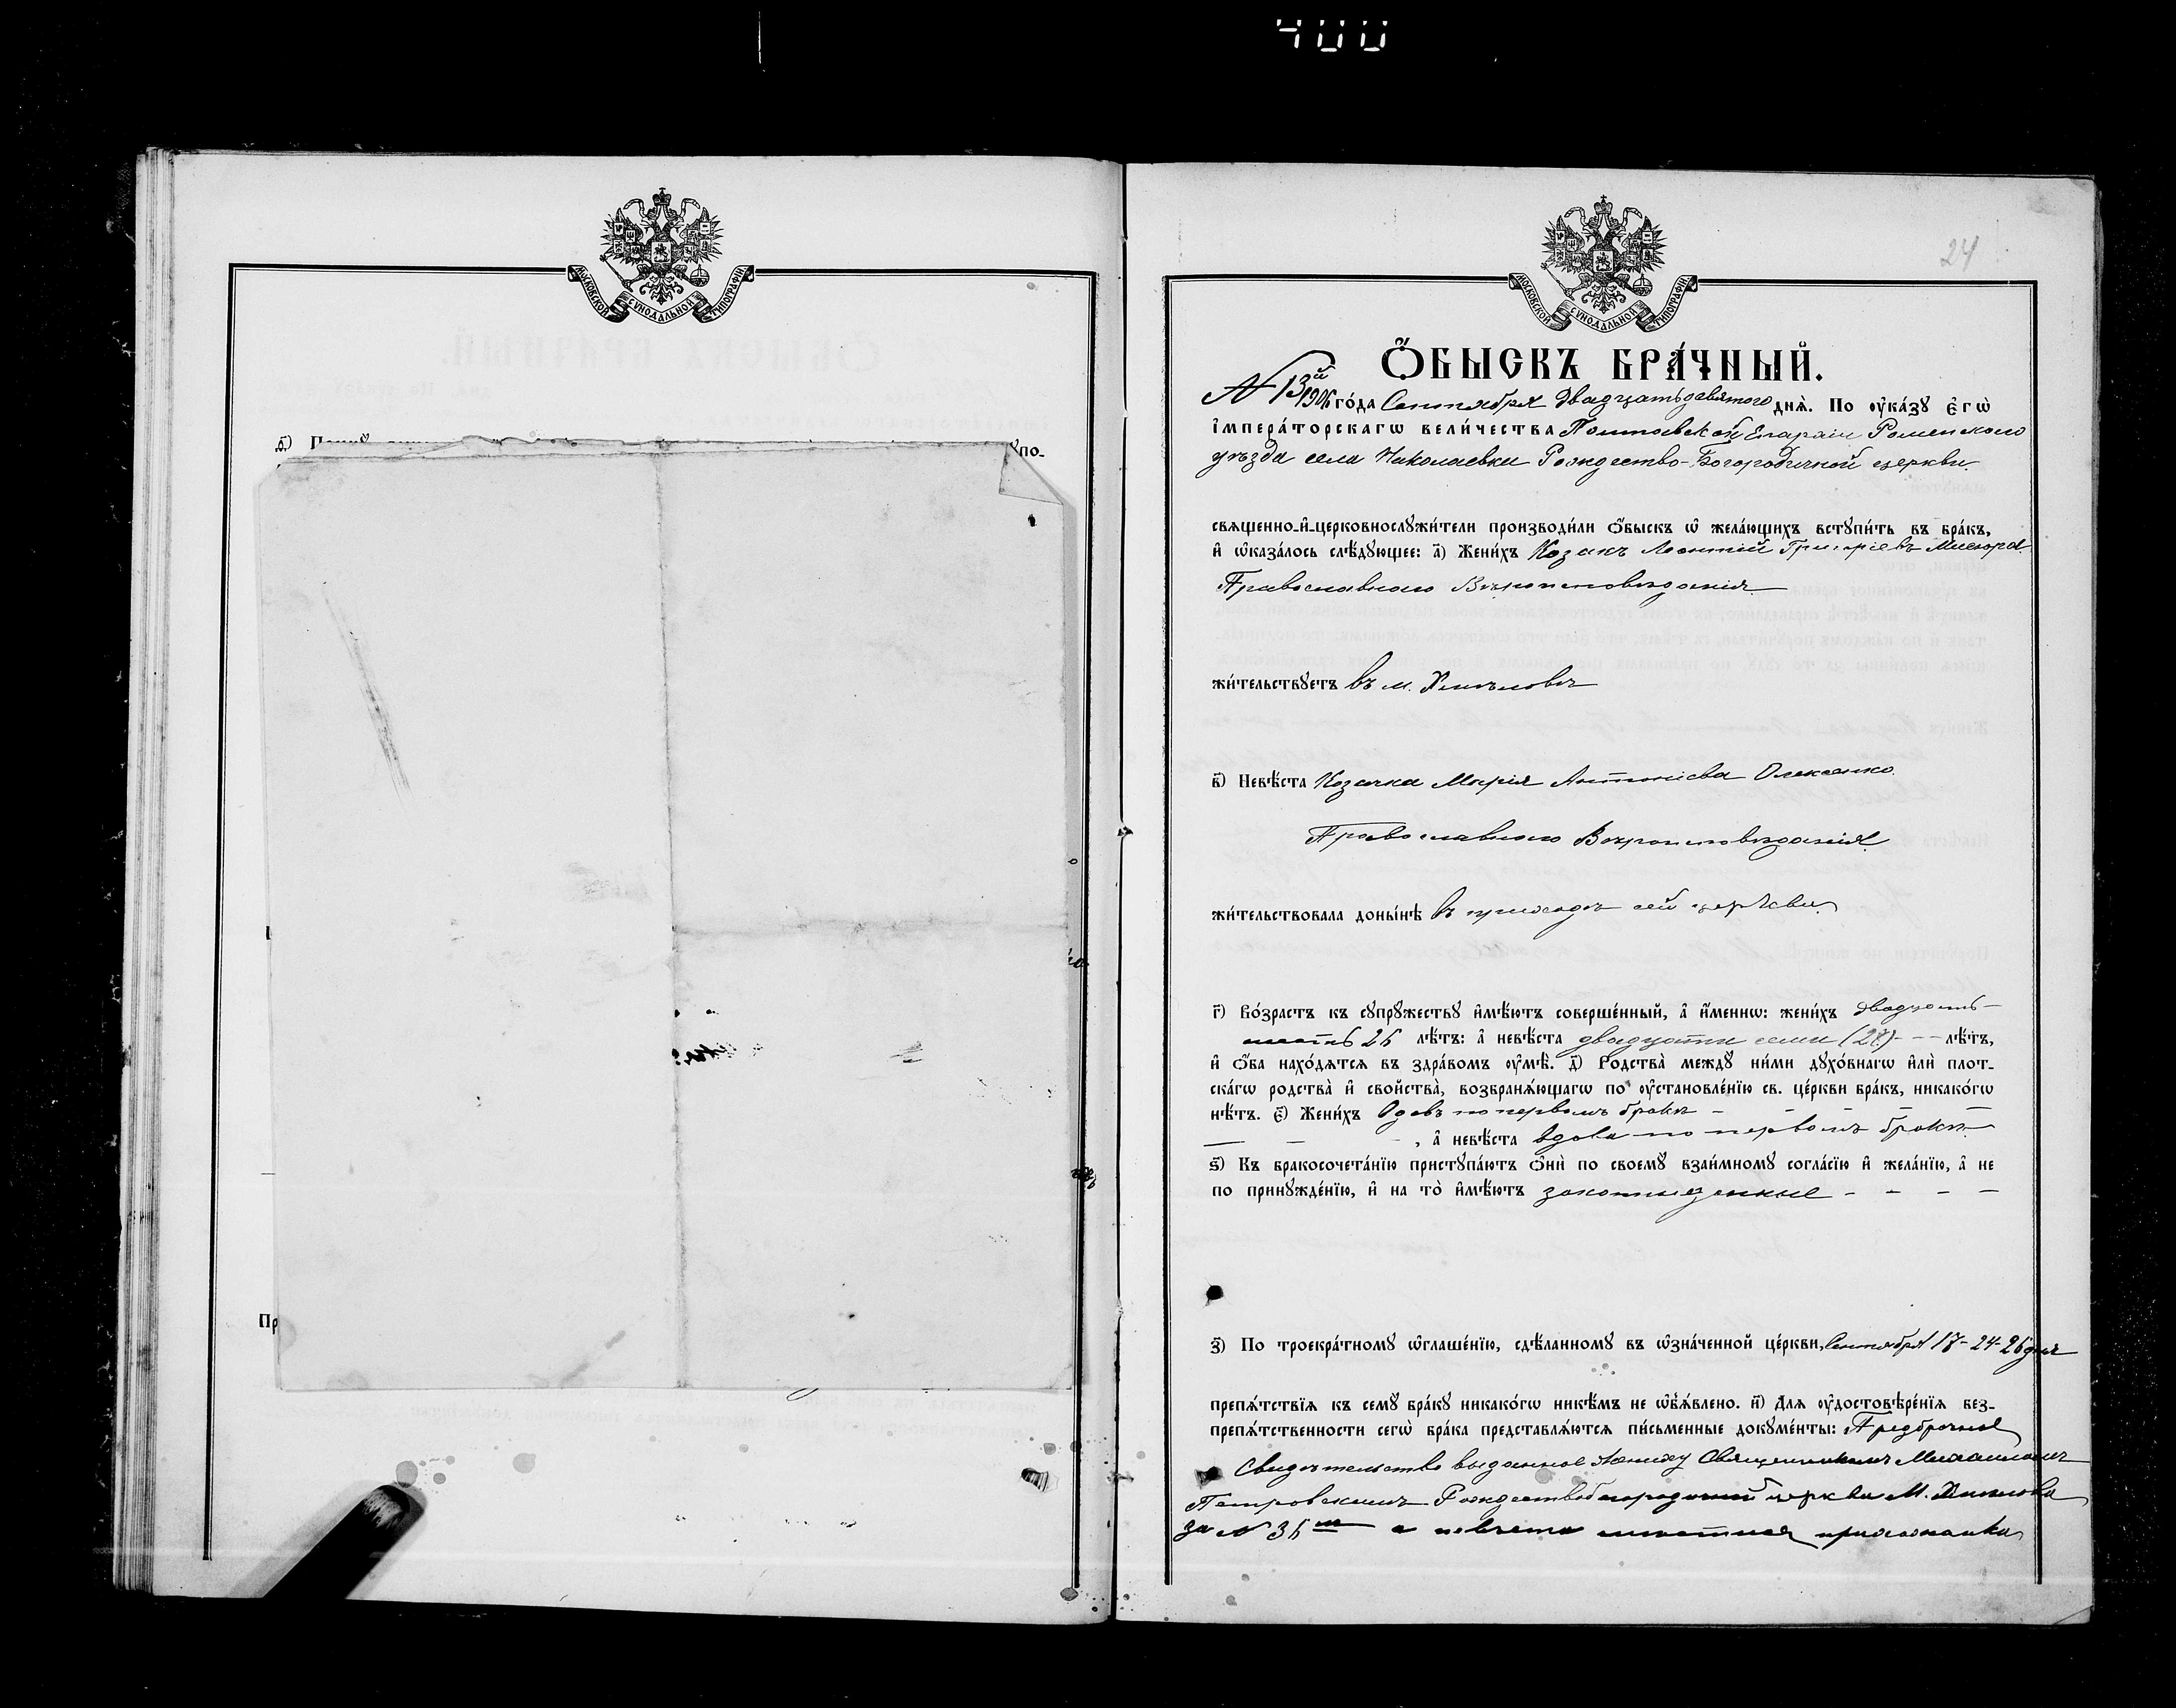 400
МОСКОВСКОЙ СУНОДАЛЬНОЙ ТИПОГРАФІИ
Пр
МОСКОВСКОЙ СУНОДАЛЬНОЙ ТИПОГРАФІИ
24
Ѻ҆БЫСКЪ БРА́ЧНЫЙ.
N 13й
1906 го́да Сентября двадцатьдевятого дня̀. По ᲂу҆ка́зꙋ є҆гѡ̀
і҆мпера́торскагѡ вели́чества Полтавской Епархіи Роменского
уѣзда села Николаевки Рождество-Богородичной церкви
свѧщенно-и҆-церковнослꙋжи́тели производи́ли ѻ҆́быскъ ѡ҆ жела́ющихъ встꙋпи́ть въ бра́къ,
и҆ ѡ҆каза́лось слѣ́дꙋющее: а҃) Жени́хъ Козакъ Леонтій Григоріевъ
Православного Вѣроисповѣданія
жи́тельствꙋетъ въ м.
в҃) Невѣ́ста Козачка Марія Антоніева Олексенко
Православного Вѣроисповѣданія
жи́тельствовала доны́нѣ въ приходѣ сей церкви
г҃) Во́зрастъ къ сꙋпрꙋ́жествꙋ и҆мѣ́ютъ соверше́нный, а҆ и҆́меннѡ: жени́хъ двадцать
шесть 26 лѣ́тъ: а҆ невѣ́ста двадцати семи (27) лѣ́тъ,
и҆ ѻ҆́ба нахо́дѧтсѧ въ здра́вомъ ᲂу҆мѣ̀. д҃) Родства̀ междꙋ̀ ни́ми дꙋхо́внагѡ и҆лѝ плот-
ска́гѡ родства̀ и҆ сво́йства̀, возбранѧ́ющагѡ по ᲂу҆становле́нїю св. це́ркви бра́къ, никако́гѡ
нѣ́тъ. є҃) Жени́хъ вдовъ по первомъ бракѣ
, а҆ невѣ́ста вдова по первомъ бракѣ
ѕ҃) Къ бракосочета́нїю пристꙋпа́ютъ ѻ҆нѝ по своемꙋ̀ взаи́мномꙋ согла́сїю и҆ жела́нїю, а҆ не
по принꙋжде́нїю, и҆ на то̀ и҆мѣ́ютъ
з҃) По троекра́тномꙋ ѡ҆глаше́нїю, сдѣ́ланномꙋ въ ѡ҆зна́ченной це́ркви, Сентября 17-24-26 дня
препѧ́тствїѧ къ семꙋ̀ бра́кꙋ никако́гѡ никѣ́мъ не ѡ҆б̾ѧ́влено. и҃) Длѧ ᲂу҆достовѣре́нїѧ без-
препѧ́тственности сегѡ̀ бра́ка представлѧ́ютсѧ пи́сьменные докꙋме́нты: Предбрачное
Свидѣтельство выданное жениху Священникомъ Михаиломъ
Петровскимъ Рождествобогородичной церкви М.
за N 36м а невѣста мѣстная прихожанка